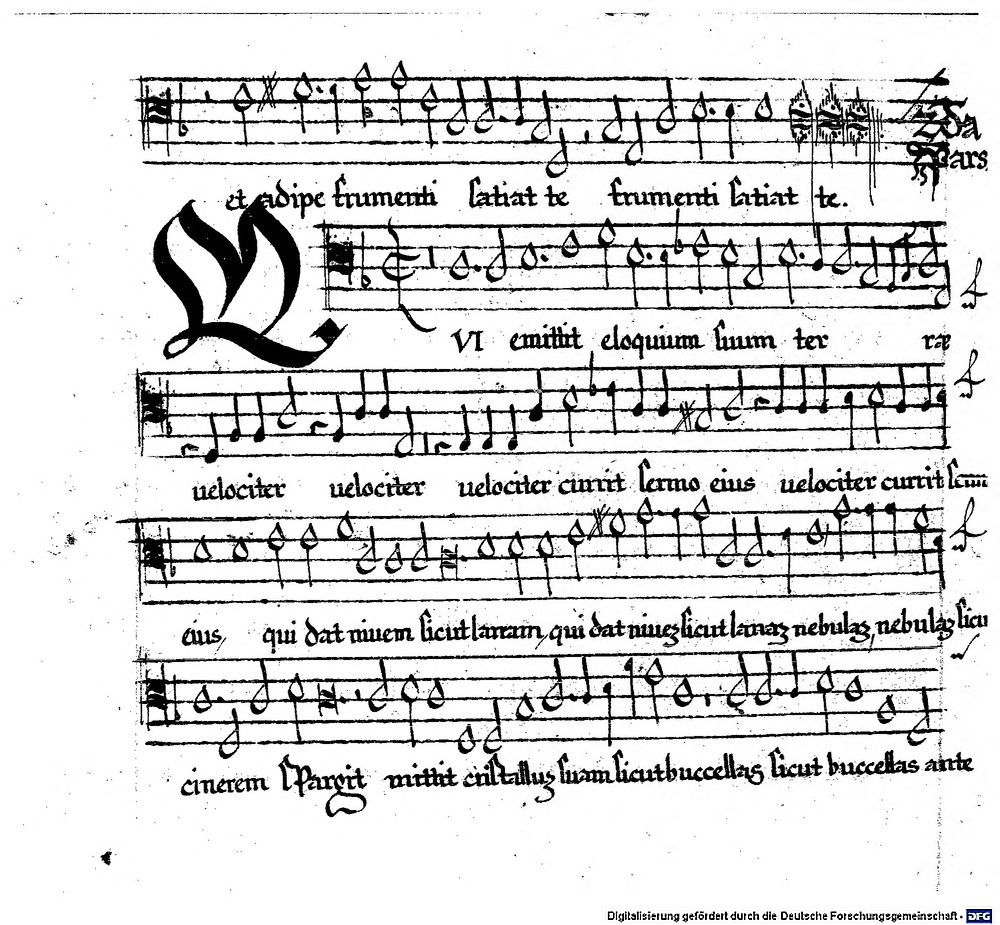 et adipe frumenti satiat te frumenti satiat te.
2da
Pars
QVI emittit eloquium suum ter ræ
uelociter uelociter uelociter currit sermo eius uelociter currit
eius, qui dat niuem sicut lanam, qui dat niuēsicut lanaꝫ nebulaꝫ, nebulaꝫ sicu
cinerem sPargit mittit cristalluꝫ suam sicut buccellas sicut buccellas ante
Digitalisierung gefördert durch die Deutsche Forschungsgemeinschaft - DFG